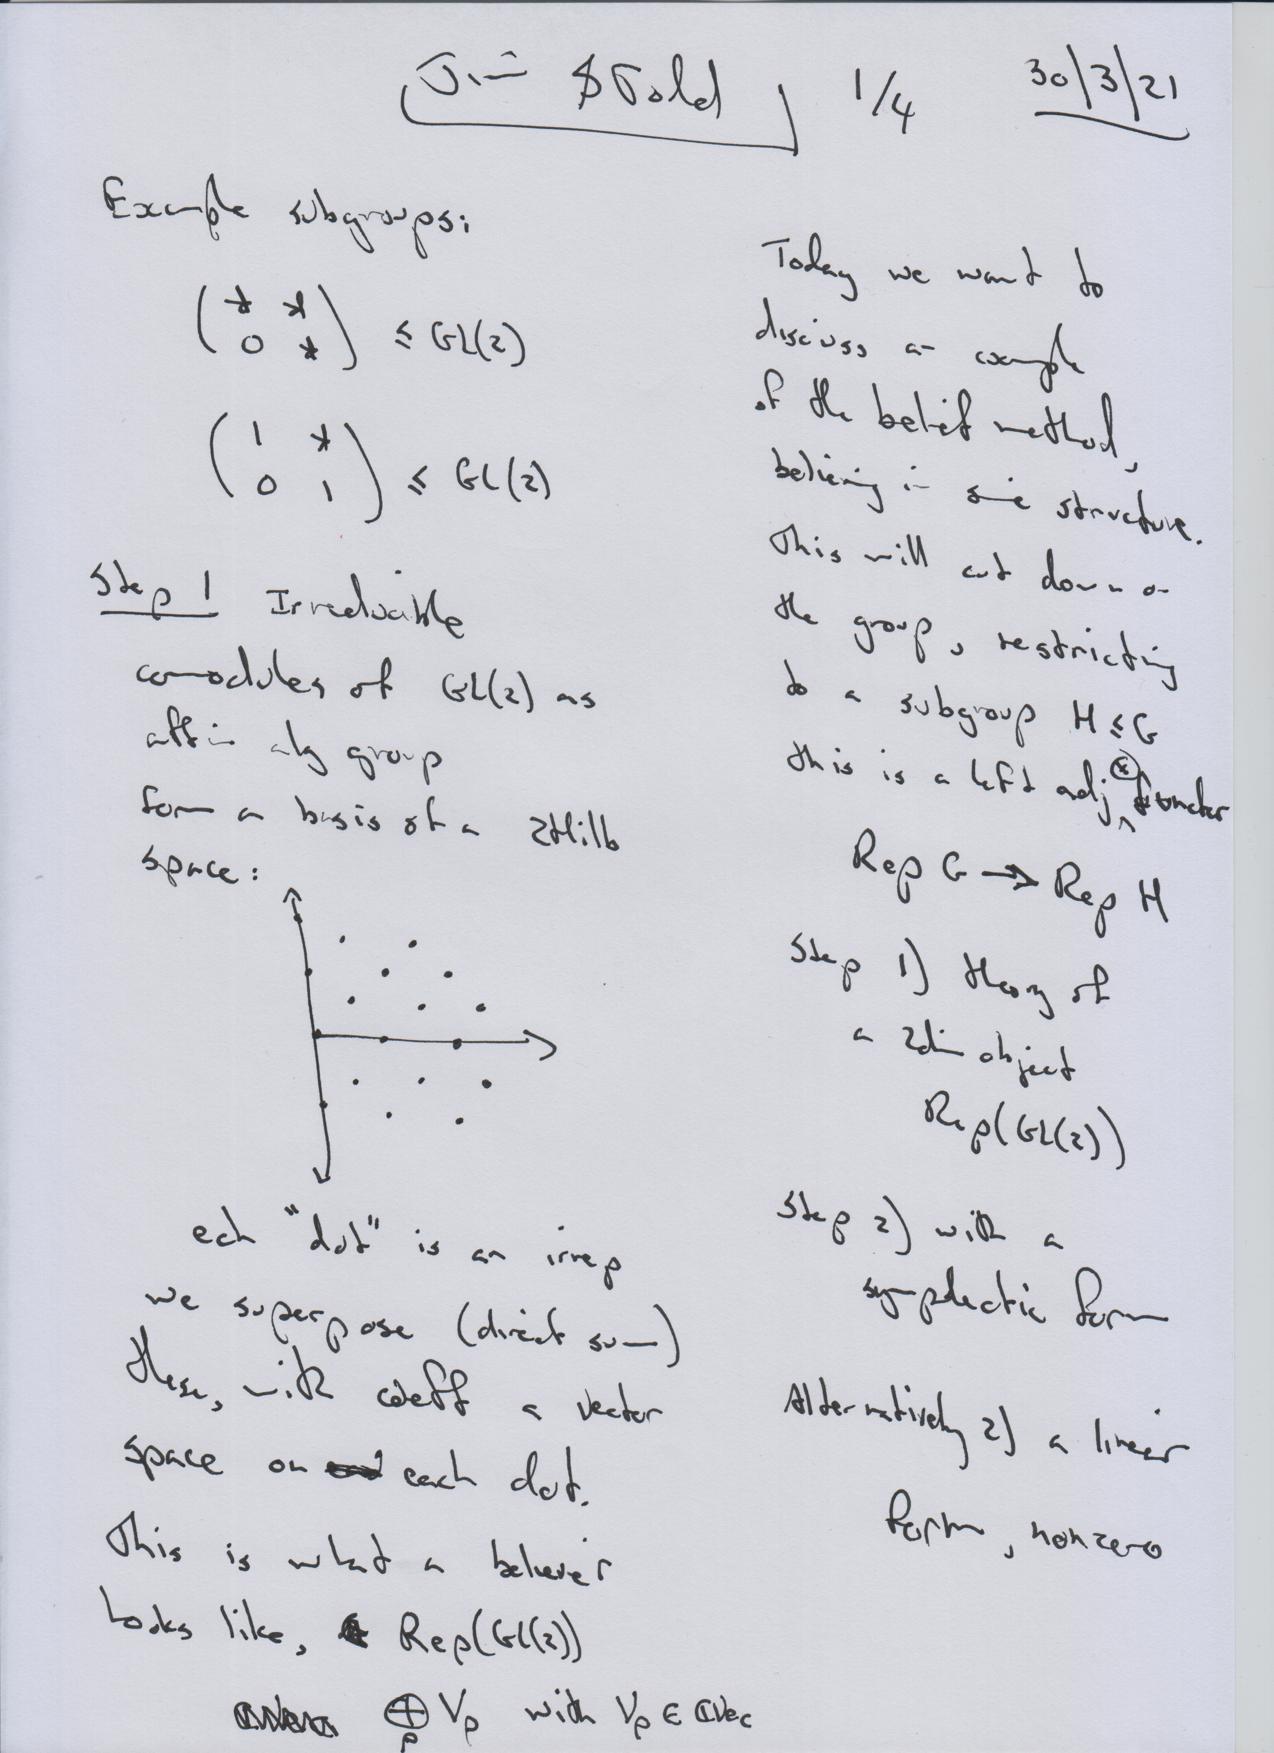 Jim $ Told 1/4 30/3/21
Example subgroups:
( * * ) ≤ GL(2)
( 0 * )
( 1 * ) ≤ GL(2)
( 0 1 )
Step 1 Irreducible
comodules of GL(2) as
affin alg group
form a basis of a 2Hilb
space:
each "dot" is an irrep
we superpose (direct sum)
these, with coeff a vector
space on each dot.
This is what a believer
looks like, Rep(GL(2))
⊕ V_p with V_p ∈ ℂVec
p
Today we want to
discuss an example
of the belief method,
believing in some structure.
This will cut down on
the group, restricting
to a subgroup H ≤ G
this is a left adj ⊗ functor
Rep G → Rep H
Step 1) theory of
a 2dim object
Rep(GL(2))
Step 2) with a
symplectic form
Alternatively 2) a linear
form, nonzero